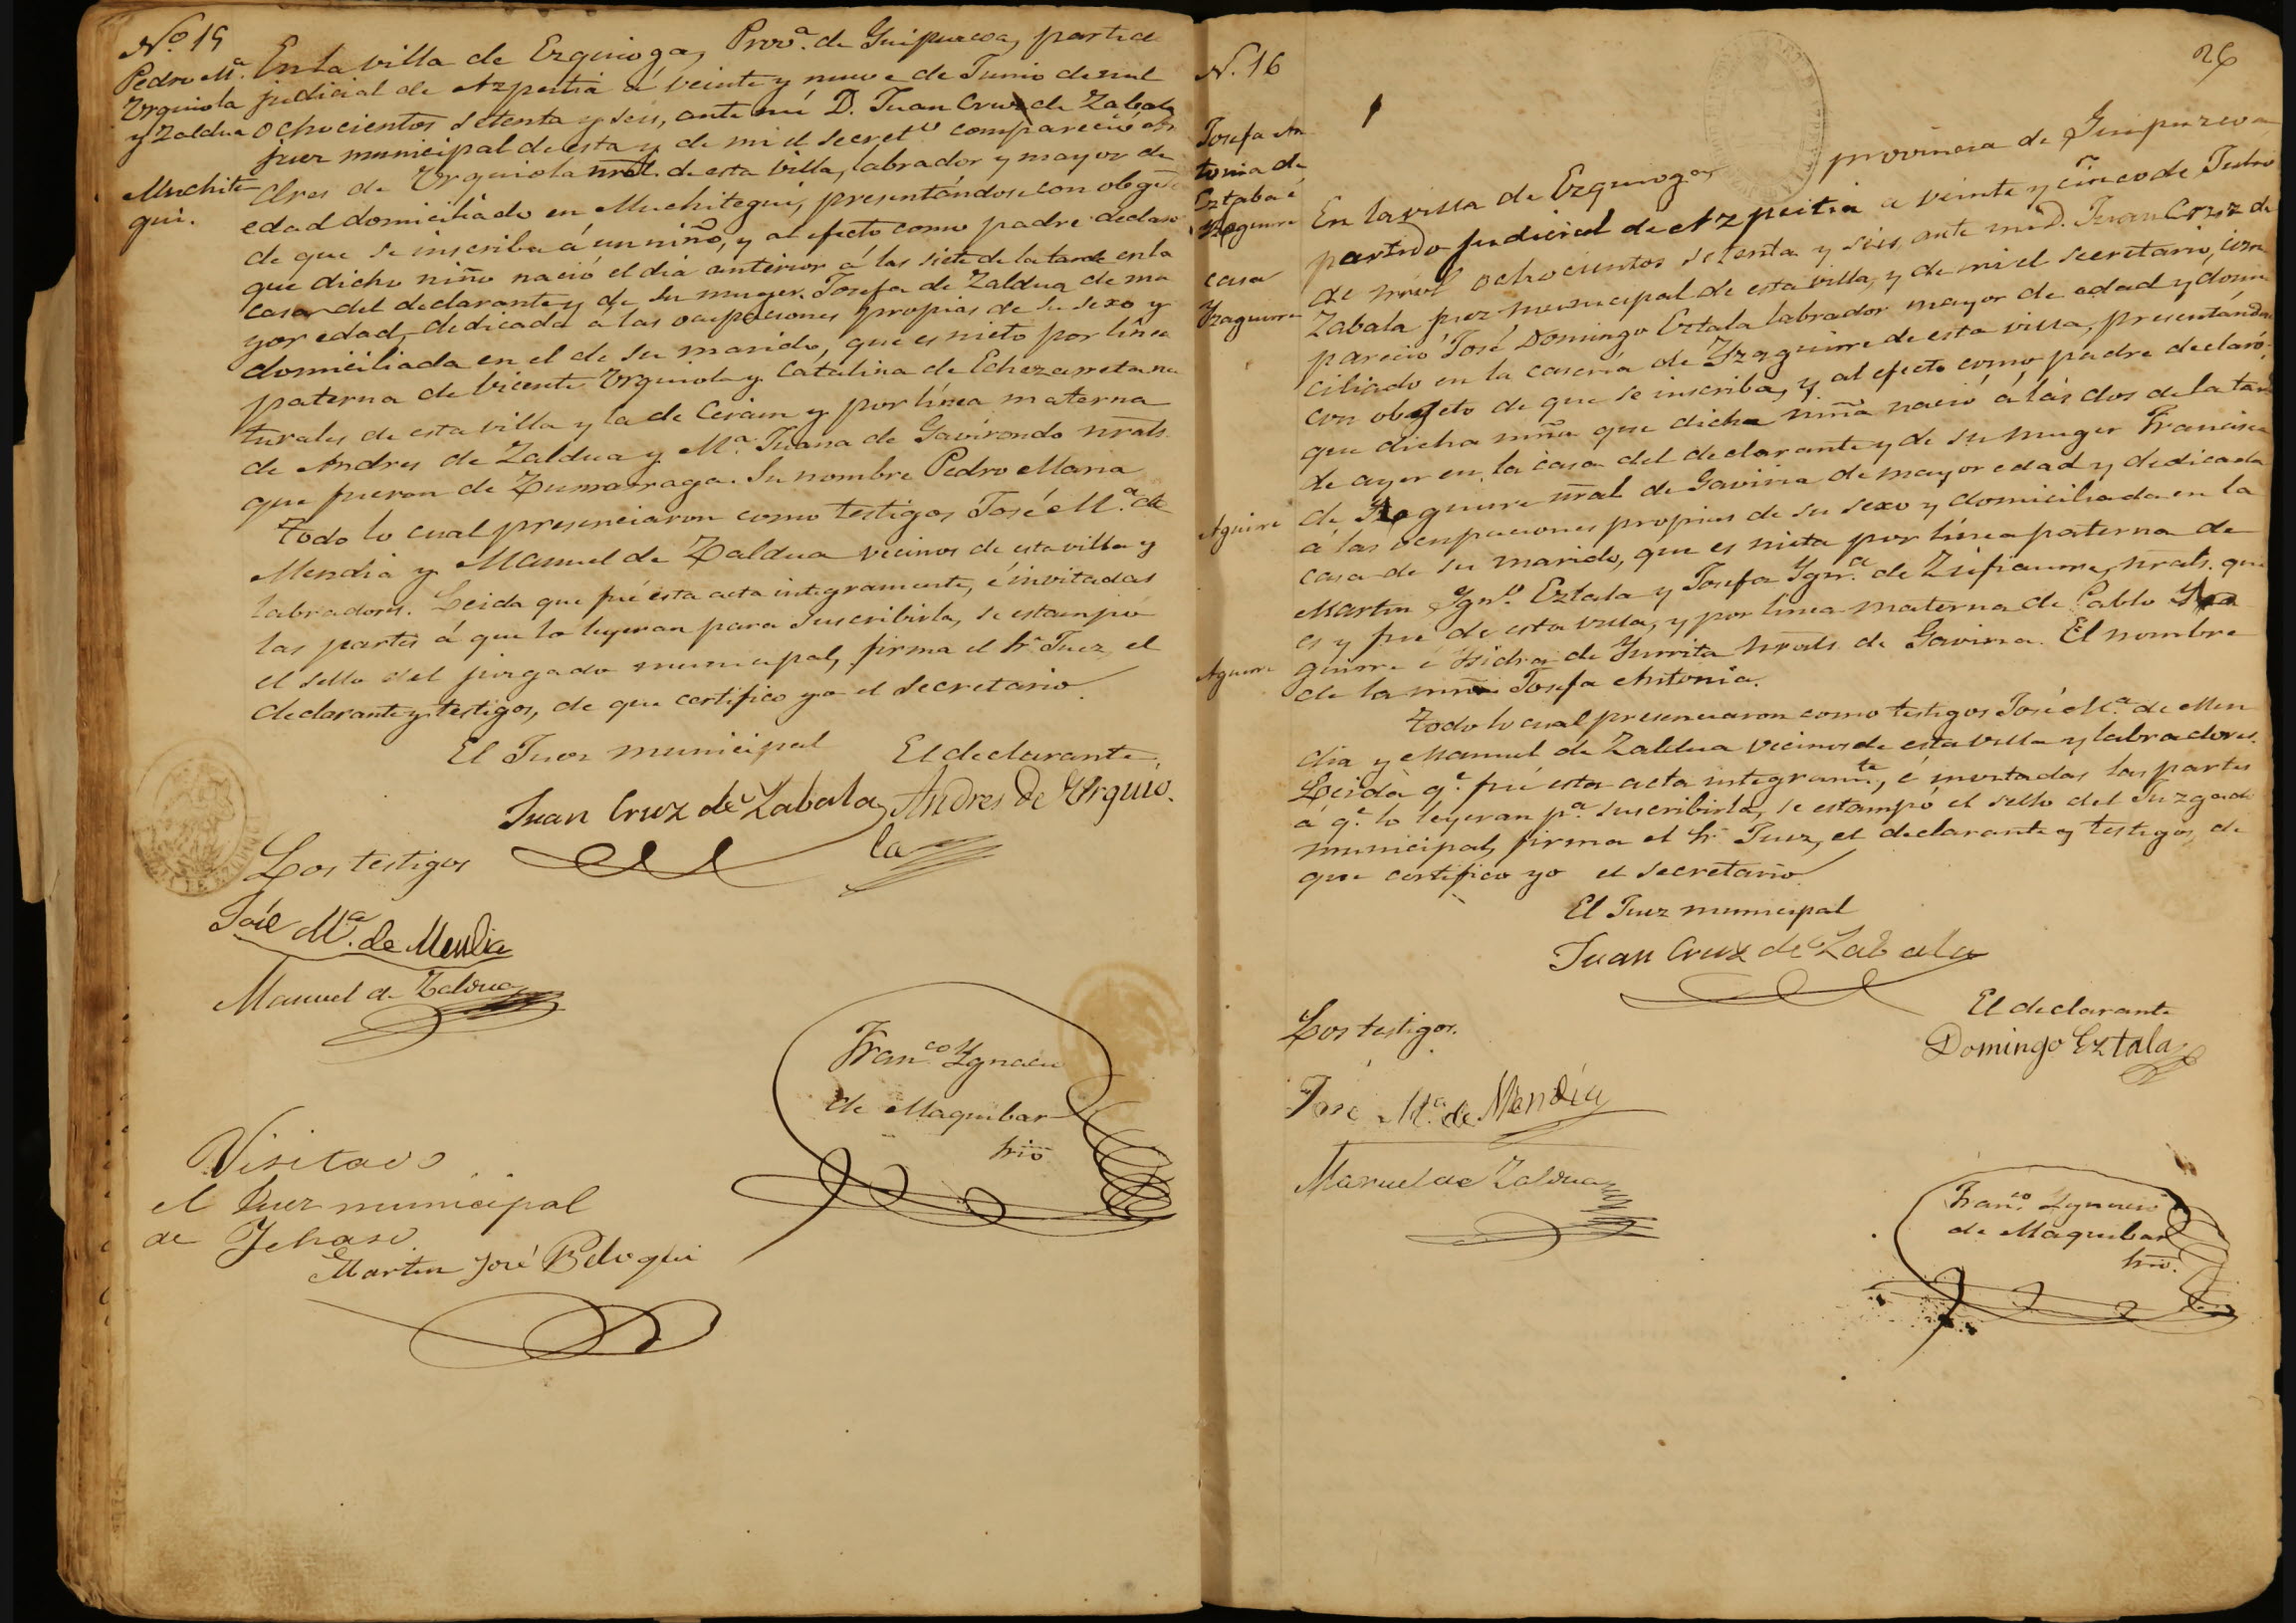 Nº 15
Pedro Mª.
Urquiola
y Zaldua
Muchite-
gui.
En la villa de Ezquioga, Provª. de Guipuzcoa, partido
judicial de Azpeitia á veinte y nueve de Junio de mil
ochocientos setenta y seis, ante mí D. Juan Cruz de Zabala
juez municipal de esta y de mi el secretº compareció An
dres de Urquiola nral. de esta villa, labrador y mayor de
edad domiciliado en Muchitegui, presentándose con obgeto
de que se inscriba á un niño, y al efecto como padre declaro
que dicho niño nació el dia anterior á las siete de la tarde en la
casa del declarante y de su muger Josefa de Zaldua de ma
yor edad, dedicada á las ocupaciones propias de su sexo y
domiciliada en el de su marido, que es nieto por línea
paterna de Vicente Urquiola y Catalina de Echezarreta na
turales de esta villa y la de Cerain y por línea materna
de Andres de Zaldua y Mª. Juana de Gavirondo nrals.
que fueron de Zumarraga. Su nombre Pedro Maria
Todo lo cual presenciaron como testigos José Mª. de
Mendia y Manuel de Zaldua vecinos de esta villa y
labradores. Leida que fué esta acta integramente, é invitadas
las partes á que la leyeran para suscribirla, se estampó
el sello del juzgado municipal, firma el Sr Juez, el
declarante y testigos, de que certifico yo el secretario.
El Juez municipal
El declarante
Juan Cruz de Zabala
Andres de Urquio.
la
Los testigos
José Mª. de Mendia
Manuel de Zaldua
Franco Ygnacio
de Maquibar
Srio
Visitado
el Juez municipal
de Ychaso
Martin José Beloqui
26
N. 16
Josefa An
tonia de
Eztala é
casa
Yzaguirre
Aguirre
Aguirre
En la villa de Ezquioga, provincia de Guipuzcoa,
partido judicial de Azpeitia a veinte y cinco de Julio
de mil ochocientos setenta y seis, ante mi D. Juan Cruz de
Zabala juez municipal de esta villa, y de mi el secretario, com
pareció José Domingo Eztala labrador mayor de edad y domi
ciliado en la caseria de Yzaguirre de esta villa, presentándose
con obgeto de que se inscriba, y al efecto como padre declaró
que dicha niña que dicha niña nació á las dos de la tar
de ayer en la casa del declarante y de su muger Francisca
de guirre nral de Gaviria de mayor edad y dedicada
á las ocupaciones propias de su sexo y domiciliada en la
casa de su marido, que es nieta por línea paterna de
Martin Ygnº. Eztala y Josefa Ygnª. de nrals. que
es y fué de esta villa, y por línea materna de Pablo
guirre é Ysidra de Yurrita nrals. de Gaviria. El nombre
de la niña Josefa Antonia.
Todo lo cual presenciaron como testigos José Mª. de Men
dia y Manuel de Zaldua vecinos de esta villa y labradores.
Leida q.e fué esta acta integramte, é invitadas las partes
á q.e la leyeran pª. suscribirla, se estampó el sello del Juzgado
municipal, firma el Sr Juez, el declarante y testigos, de
que certifico yo el secretario.
El Juez municipal
Juan Cruz de Zabala
El declarante
Domingo Eztala
Los testigos.
José Mª. de Mendia
Manuel de Zaldua
Franco Ygnacio
de Maquibar
Srio.